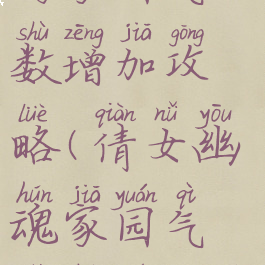 shù zēng jiā gōng
数增加攻
lüè qiàn nǚ yōu
略(倩女幽
hún jiā yuán qì
魂家园气